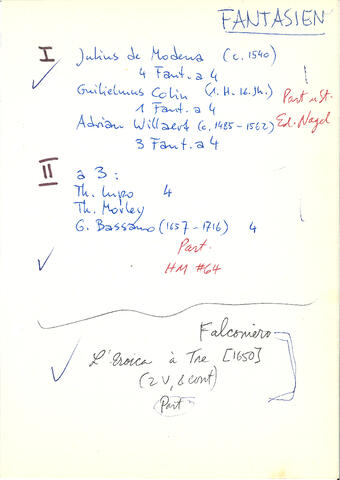 FANTASIEN
I Julius de Modena (c. 1540)
4 Fant. a 4
Guilielmus Colin (1. H. 16. Jh.)
1 Fant. a 4
Part u St.
Adrian Willaert (c. 1485-1562)
Ed. Nagel
3 Fant. a 4
II a 3:
Th. Lupo 4
Th. Morley
G. Bassano (1657-1716) 4
Part.
HM #64
Falconiero
L'Eroica à Tre [1650]
(2 V, b cont)
Part